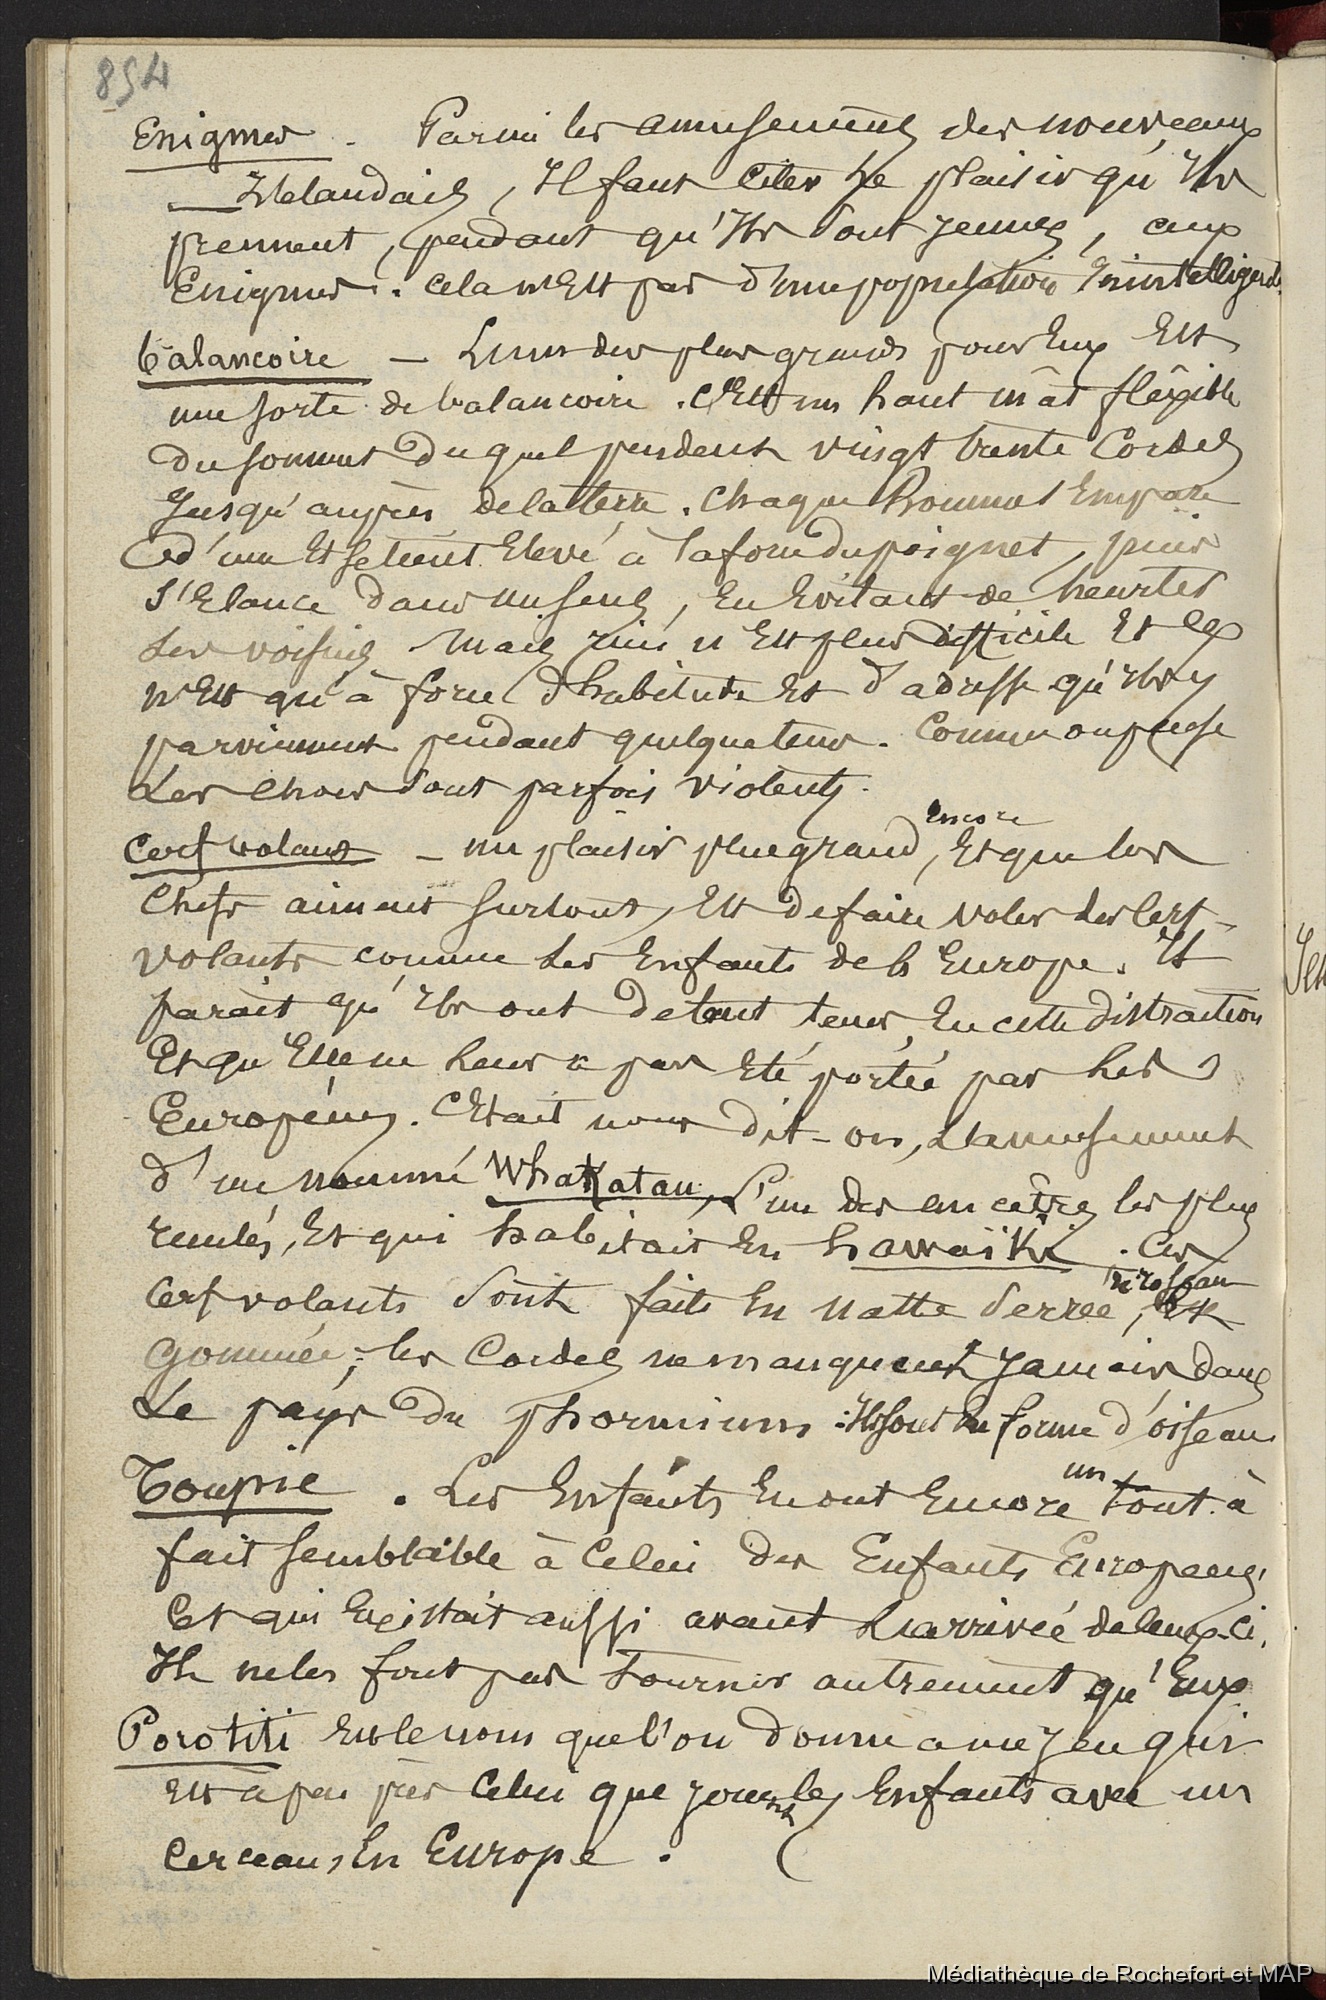 854
Enigmes. Parmi les amusements des nouveaux
Zélandais, Il faut citer le plaisir qu'Ils
prennent, pendant qu'Ils sont jeunes, aux
Enigmes. cela n'Est pas d'une population inintelligente.
balançoire — L'un des plus grands pour Eux Est
une sorte de balançoire. C'Est un haut mât fléxible
du sommet du quel pendent vingt trente Cordes
Jusqu'auprès de la terre. Chaque homme s'Empare
d'une Et se tient Elevé à la force du poignet, puis
s'Elance dans un sens, En Evitant de heurter
ses voisins. Mais rien n'Est plus difficile Et ce
n'Est qu'à force d'habitude Et d'adresse qu'Ils y
parviennent pendant quelque tems. Comme on pense
Les chocs sont parfois violents.
Cerf volant — un plaisir plus grand encore, Et que les
Chefs aiment surtout, Est de faire voler des Cerf-
volants comme les Enfants de l'Europe. Il
parait qu'Ils ont de tout tems, Eu cette distraction
Et qu'Elle ne leur a pas Eté portée par les
Européens. C'Etait nous dit-on, L'amusement
d'un nommé Whakatau, l'un des ancêtres les plus
reculés, Et qui habitait En hawaïki. Ces
Cerf volants sont faits En natte serrée, roseau Et
Gommée; les Cordes ne manquent Jamais dans
Le pays du phormium. Ils sont En forme d'oiseau.
Toupie. Les Enfants En ont Encore un tout à
fait semblable à Celui des Enfants Européens,
Et qui Existait aussi avant L'arrivée de Ceux-ci.
Ils ne les font pas Tourner autrement qu'Eux
Porotiti Est le nom que l'on donne a un jeu qui
Est a peu près Celui que jouent les Enfants avec un
Cerceau, En Europe.
Médiathèque de Rochefort et MAP